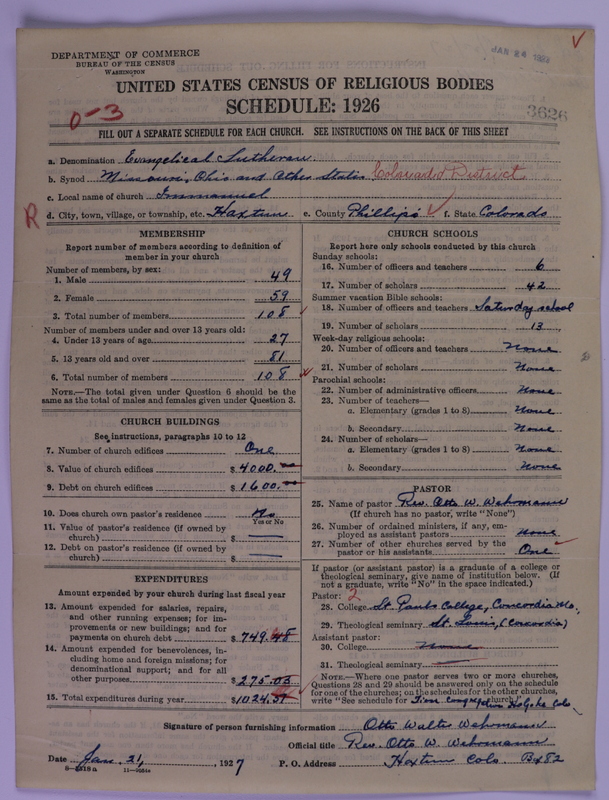 DEPARTMENT OF COMMERCE
BUREAU OF THE CENSUS
WASHINGTON
UNITED STATES CENSUS OF RELIGIOUS BODIES
SCHEDULE: 1926
0-3
3626
FILL OUT A SEPARATE SCHEDULE FOR EACH CHURCH. SEE INSTRUCTIONS ON THE BACK OF THIS SHEET
a. Denomination Evangelical Lutheran
b. Synod Missouri, Ohio and Other States Colorado District
c. Local name of church Immanuel
R d. City, town, village, or township, etc. Haxtum e. County Phillips f. State Colorado
MEMBERSHIP
Report number of members according to definition of
member in your church
Number of members, by sex:
1. Male 49
2. Female 59
3. Total number of members 108
Number of members under and over 13 years old:
4. Under 13 years of age 27
5. 13 years old and over 81
6. Total number of members 108
NOTE.—The total given under Question 6 should be the
same as the total of males and females given under Question 3.
CHURCH BUILDINGS
See instructions, paragraphs 10 to 12
7. Number of church edifices One
8. Value of church edifices $ 4000.
9. Debt on church edifices $ 1600.
10. Does church own pastor's residence No
Yes or No
11. Value of pastor's residence (if owned by
church) $ —
12. Debt on pastor's residence (if owned by
church) $ —
EXPENDITURES
Amount expended by your church during last fiscal year
13. Amount expended for salaries, repairs,
and other running expenses; for im-
provements or new buildings; and for
payments on church debt $ 749.48
14. Amount expended for benevolences, in-
cluding home and foreign missions; for
denominational support; and for all
other purposes $ 275.03
15. Total expenditures during year $ 1024.51
CHURCH SCHOOLS
Report here only schools conducted by this church
Sunday schools:
16. Number of officers and teachers 6
17. Number of scholars 42
Summer vacation Bible schools:
18. Number of officers and teachers Saturday school
19. Number of scholars 13
Week-day religious schools:
20. Number of officers and teachers None
21. Number of scholars None
Parochial schools:
22. Number of administrative officers None
23. Number of teachers—
a. Elementary (grades 1 to 8) None
b. Secondary None
24. Number of scholars—
a. Elementary (grades 1 to 8) None
b. Secondary None
PASTOR
25. Name of pastor Rev. Otto W. Wehrmann
(If church has no pastor, write "None")
26. Number of ordained ministers, if any, em-
ployed as assistant pastors None
27. Number of other churches served by the
pastor or his assistants One
If pastor (or assistant pastor) is a graduate of a college or
theological seminary, give name of institution below. (If
not a graduate, write "No" in the space indicated.)
Pastor: 2
28. College St. Pauls College, Concordia Mo.
29. Theological seminary St. Louis, (Concordia)
Assistant pastor:
30. College None
31. Theological seminary
NOTE.—Where one pastor serves two or more churches,
Questions 28 and 29 should be answered only on the schedule
for one of the churches; on the schedules for the other churches,
write "See schedule for Zion Congregation Holyoke Colo. church."
Signature of person furnishing information Otto Walter Wehrmann
Official title Rev. Otto W. Wehrmann
Date Jan. 21, 1927 P. O. Address Haxtum Colo. Bx 82
8-5318a